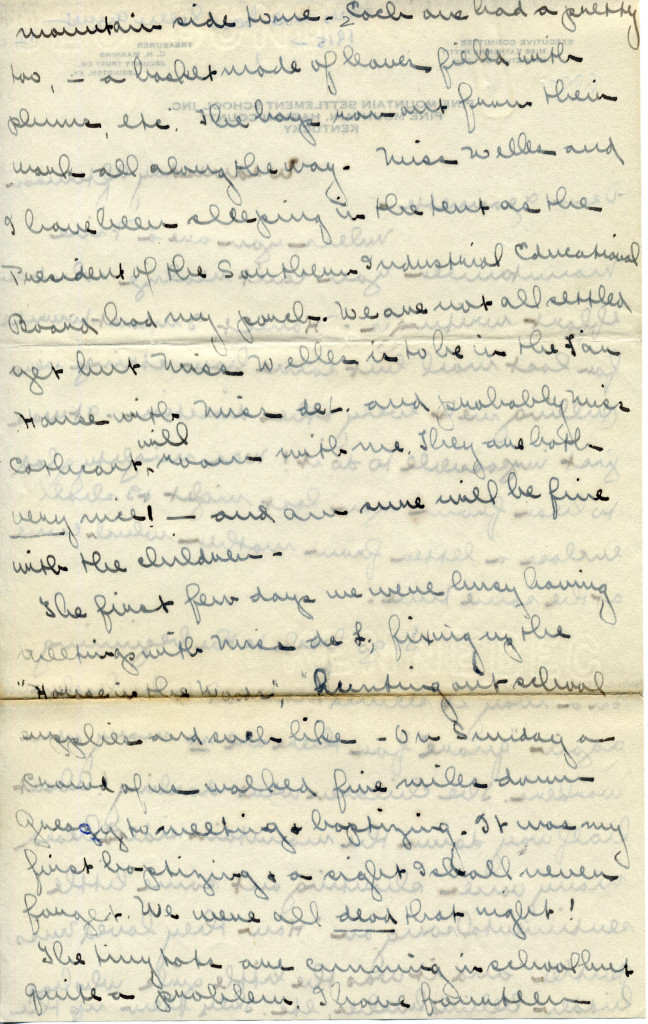 mountain side home - Each one had a pretty
too, - a basket made of leaves filled with
plums, etc. The boys ran out from their
work all along the way. Miss Welles and
I have been sleeping in the tent as the
President of the Southern Industrial Educational
Board had my porch. We are not all settled
yet but Miss Welles is to be in the Far
House with Miss de L. and probably Miss
Cathcart, will room with me. They are both
very nice! - and am sure will be fine
with the children -
The first few days we were busy having
meetings with Miss de L, fixing up the
"House in the Woods", hunting out school
supplies and such like - On Sunday a
crowd of us walked five miles down
Greasy to meeting & baptizing. It was my
first baptizing & a sight I shall never
forget. We were all dead that night!
The tiny tots are cunning in school but
quite a problem. I have fourteen